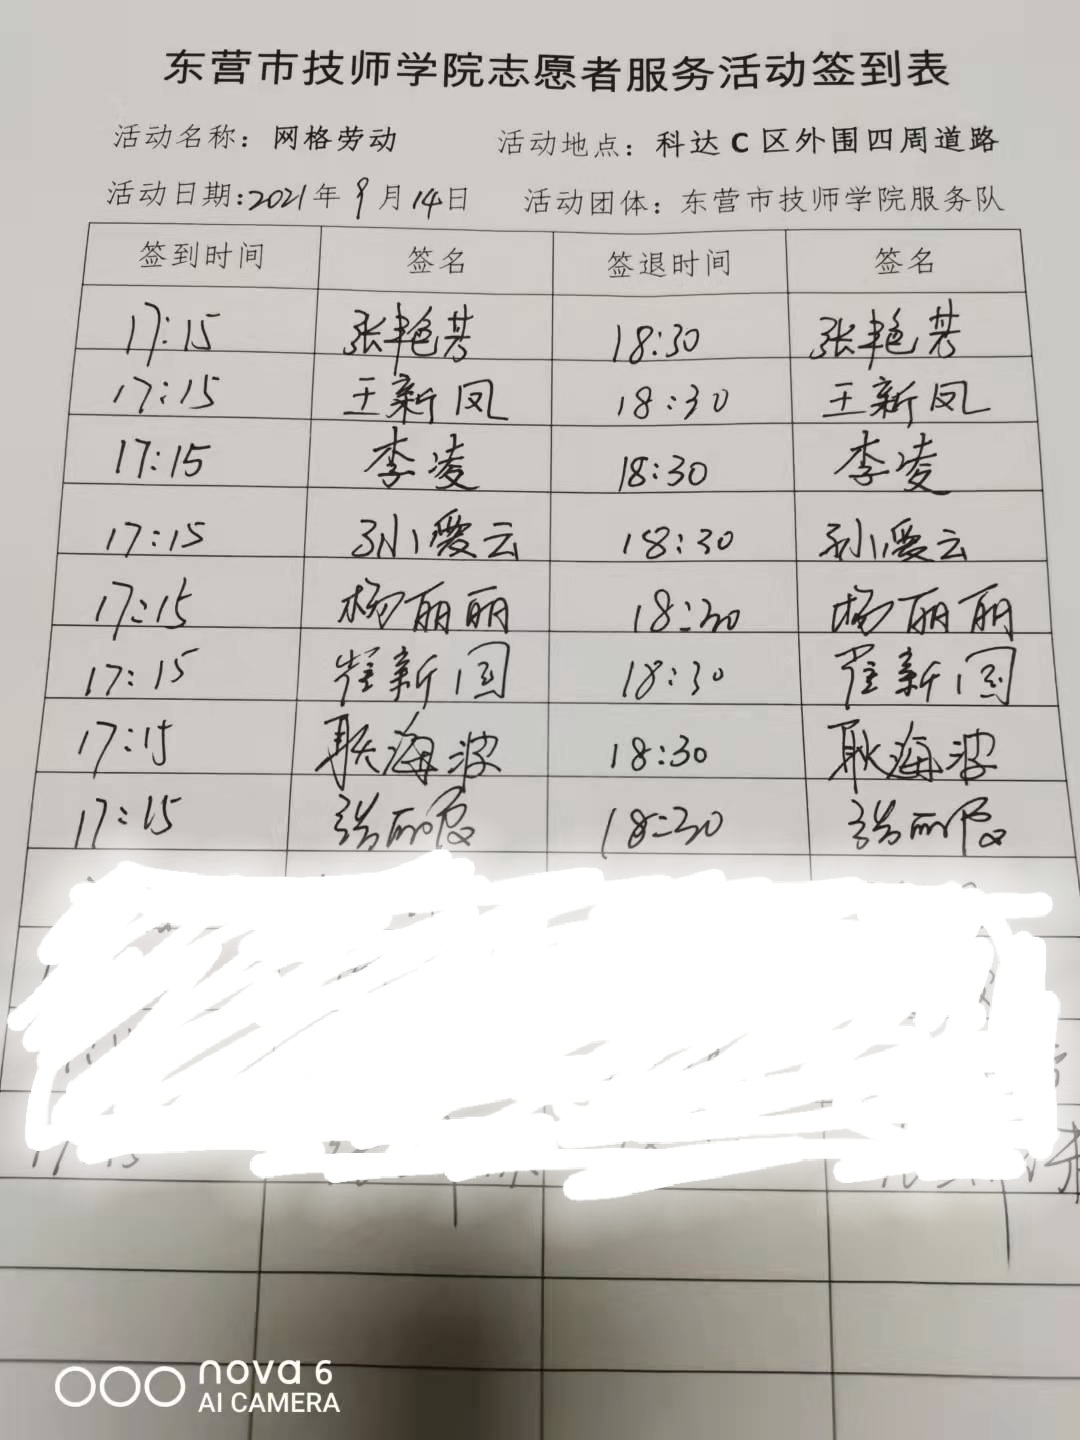 东营市技师学院志愿者服务活动签到表
活动名称：网格劳动 活动地点：科达C区外围四周道路
活动日期:2021年9月14日 活动团体：东营市技师学院服务队
签到时间 签名 签退时间 签名
17:15 张艳芳 18:30 张艳芳
17:15 王新凤 18:30 王新凤
17:15 李凌 18:30 李凌
17:15 孙爱云 18:30 孙爱云
17:15 杨丽丽 18:30 杨丽丽
17:15 崔新国 18:30 崔新国
17:15 耿海波 18:30 耿海波
17:15 18:30
17:15
nova 6
AI CAMERA